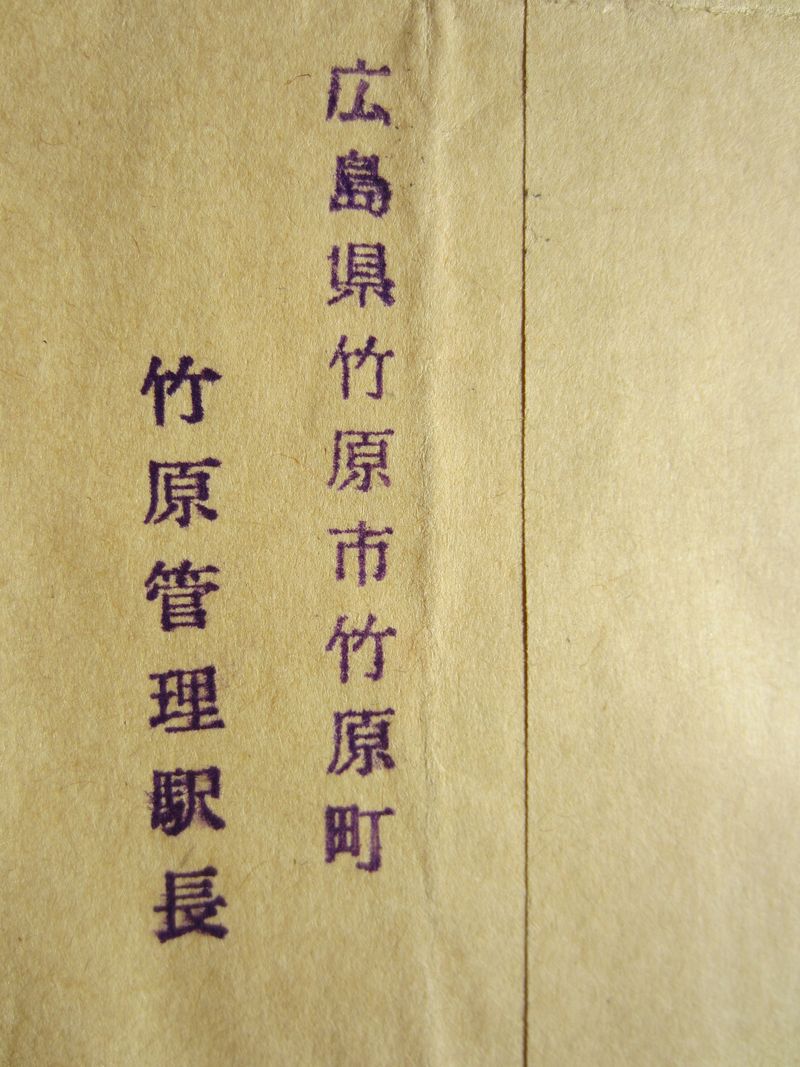 広島県竹原市竹原町
竹原管理駅長